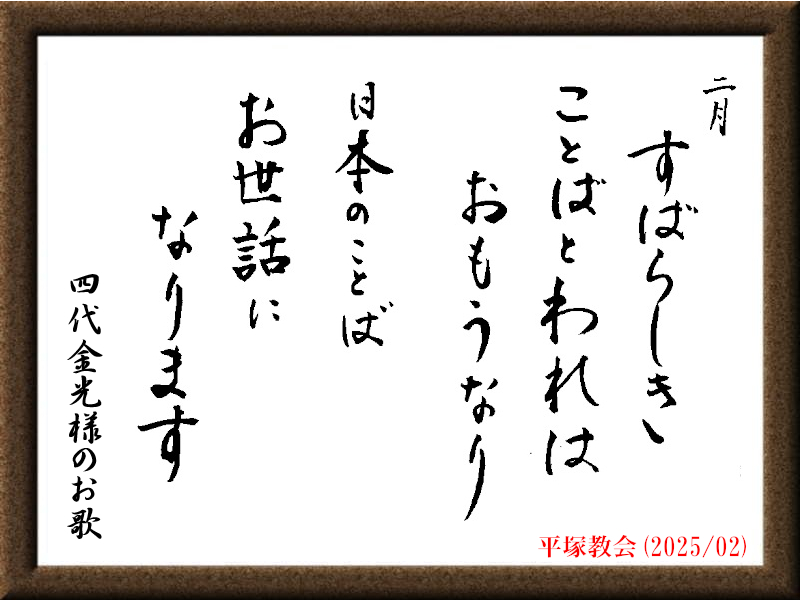 二月
すばらしき
ことばとわれは
おもうなり
日本のことば
お世話に
なります
四代金光様のお歌
平塚教会(2025/02)